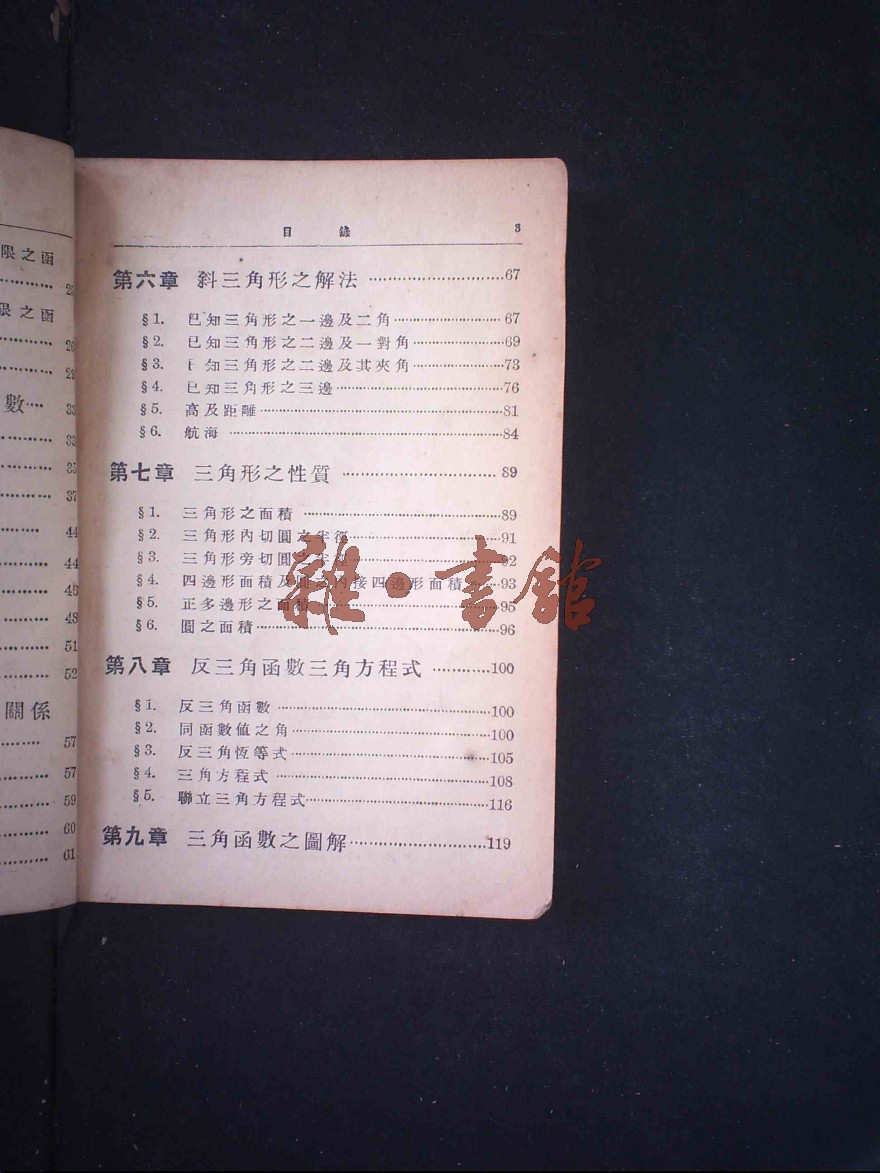 限之函
25
限之函
26
29
數 33
33
35
37
44
44
46
48
51
52
關係
57
57
59
60
61
目錄 3
第六章 斜三角形之解法 67
§1. 已知三角形之一邊及二角 67
§2. 已知三角形之二邊及一對角 69
§3. 知三角形之二邊及其夾角 73
§4. 已知三角形之三邊 76
§5. 高及距離 81
§6. 航海 84
第七章 三角形之性質 89
§1. 三角形之面積 89
§2. 三角形內切圓之半徑 91
§3. 三角形旁切圓 92
§4. 四邊形面積及圓之內接四邊形面積 93
§5. 正多邊形之面積 95
§6. 圓之面積 96
雜·書館
第八章 反三角函數三角方程式 100
§1. 反三角函數 100
§2. 同函數值之角 100
§3. 反三角恆等式 105
§4. 三角方程式 108
§5. 聯立三角方程式 116
第九章 三角函數之圖解 119